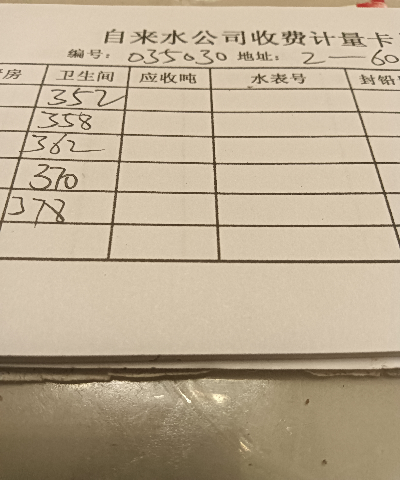 自来水公司收费计量卡
编号：035030 地址：2—60
房 卫生间 应收吨 水表号 封铅
352
358
362
370
378